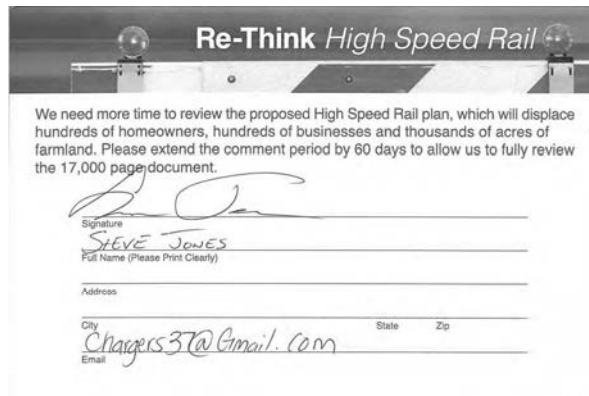 Re-Think High Speed Rail
We need more time to review the proposed High Speed Rail plan, which will displace
hundreds of homeowners, hundreds of businesses and thousands of acres of
farmland. Please extend the comment period by 60 days to allow us to fully review
the 17,000 page document.
Signature
STEVE JONES
Full Name (Please Print Clearly)
Address
City State Zip
Chargers37@Gmail.com
Email